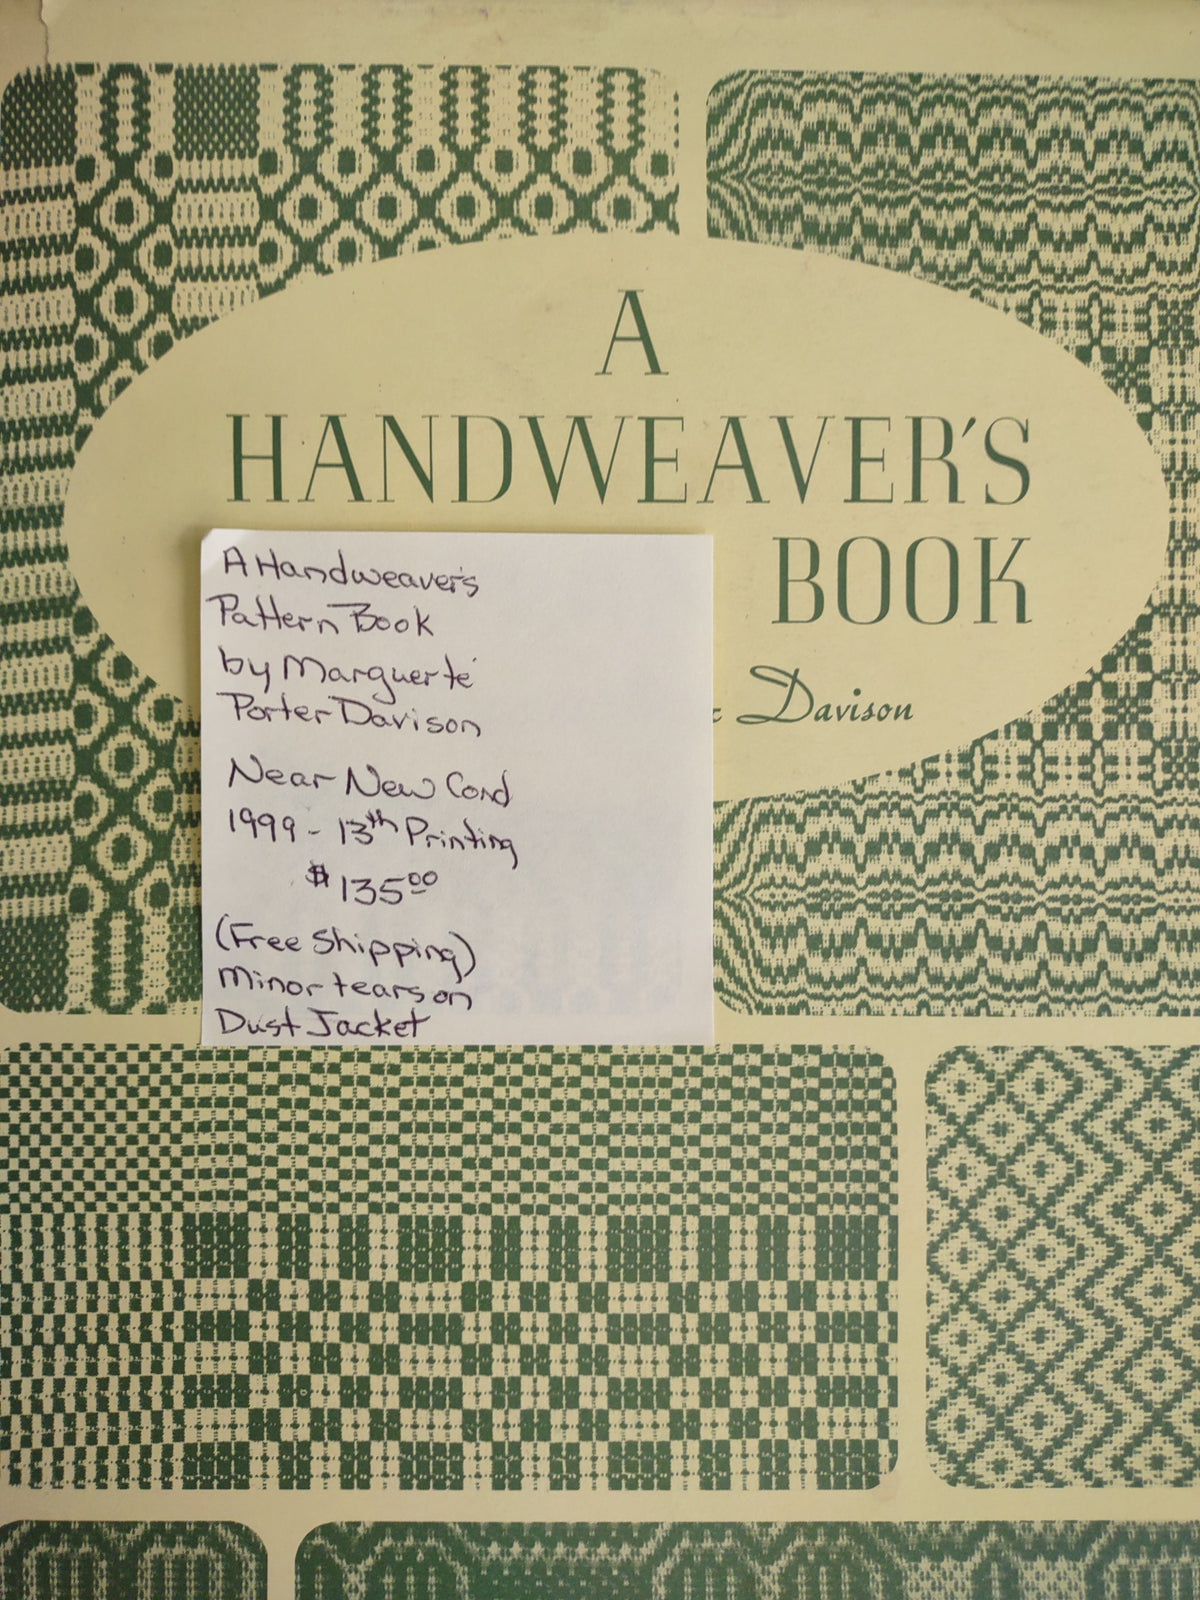 A
HANDWEAVER'S
BOOK
Davison
A Handweaver's
Pattern Book
by Marguerte
Porter Davison
Near New Cond
1999 - 13th Printing
$135.00
(Free Shipping)
Minor tears on
Dust Jacket